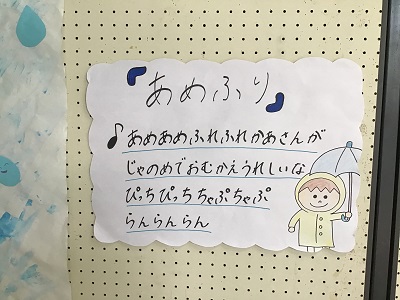 『あめふり』
♪あめあめふれふれかあさんが
じゃのめでおむかえうれしいな
ぴっちぴっちちゃぷちゃぷ
らんらんらん